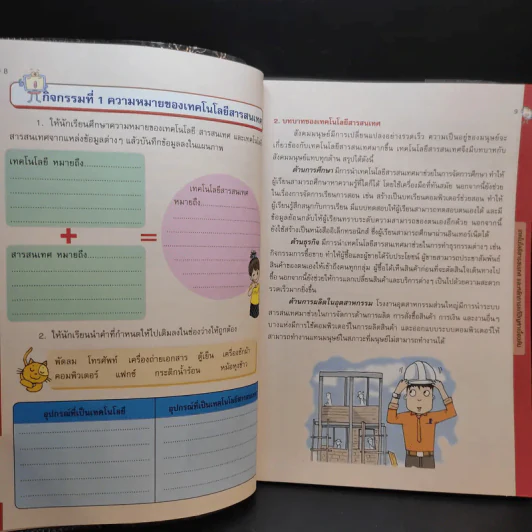 8
กิจกรรมที่ 1 ความหมายของเทคโนโลยีสารสนเทศ
1. ให้นักเรียนศึกษาความหมายของเทคโนโลยี สารสนเทศ และเทคโนโลยี
สารสนเทศจากแหล่งข้อมูลต่างๆ แล้วบันทึกข้อมูลลงในแผนภาพ
เทคโนโลยี หมายถึง
เทคโนโลยีสารสนเทศ
หมายถึง
+
=
สารสนเทศ หมายถึง
2. ให้นักเรียนนำคำที่กำหนดให้ไปเติมลงในช่องว่างให้ถูกต้อง
พัดลม โทรศัพท์ เครื่องถ่ายเอกสาร ตู้เย็น เครื่องซักผ้า
คอมพิวเตอร์ แฟกซ์ กระติกน้ำร้อน หม้อหุงข้าว
อุปกรณ์ที่เป็นเทคโนโลยี
อุปกรณ์ที่เป็นเทคโนโลยีสารสนเทศ
2. บทบาทของเทคโนโลยีสารสนเทศ
สังคมมนุษย์มีการเปลี่ยนแปลงอย่างรวดเร็ว ความเป็นอยู่ของมนุษย์จะ
เกี่ยวข้องกับเทคโนโลยีสารสนเทศมากขึ้น เทคโนโลยีสารสนเทศจึงมีบทบาทกับ
สังคมมนุษย์แทบทุกด้าน สรุปได้ดังนี้
ด้านการศึกษา มีการนำเทคโนโลยีสารสนเทศมาช่วยในการจัดการศึกษา ทำให้
ผู้เรียนสามารถศึกษาหาความรู้ที่ใดก็ได้ โดยใช้เครื่องมือที่ทันสมัย นอกจากนี้ยังช่วย
ในเรื่องการจัดการเรียนการสอน เช่น สร้างเป็นบทเรียนคอมพิวเตอร์ช่วยสอน ทำให้
ผู้เรียนรู้สึกสนุกกับการเรียน มีแบบทดสอบให้ผู้เรียนสามารถทดสอบตนเองได้ และมี
ข้อมูลย้อนกลับให้ผู้เรียนทราบระดับความสามารถของตนเองอีกด้วย นอกจากนี้
ยังใช้สร้างเป็นหนังสืออิเล็กทรอนิกส์ ซึ่งผู้เรียนสามารถอ่านผ่านอินเทอร์เน็ตได้
ด้านธุรกิจ มีการนำเทคโนโลยีสารสนเทศมาช่วยในการทำธุรกรรมต่างๆ เช่น
กิจกรรมการซื้อขาย ทำให้ผู้ซื้อและผู้ขายได้รับประโยชน์ ผู้ขายสามารถประชาสัมพันธ์
สินค้าของตนเองให้เข้าถึงคนทุกกลุ่ม ผู้ซื้อได้เห็นสินค้าก่อนที่จะตัดสินใจเดินทางไป
ซื้อ นอกจากนี้ยังช่วยให้การแลกเปลี่ยนสินค้าและบริการต่างๆ เป็นไปด้วยความสะดวก
รวดเร็วมากยิ่งขึ้น
ด้านการผลิตในอุตสาหกรรม โรงงานอุตสาหกรรมส่วนใหญ่มีการนำระบบ
สารสนเทศมาช่วยในการจัดการด้านการผลิต การสั่งซื้อสินค้า การเงิน และงานอื่นๆ
บางแห่งมีการใช้คอมพิวเตอร์ในการผลิตสินค้า และออกแบบระบบคอมพิวเตอร์ให้
สามารถทำงานแทนมนุษย์ในสภาวะที่มนุษย์ไม่สามารถทำงานได้